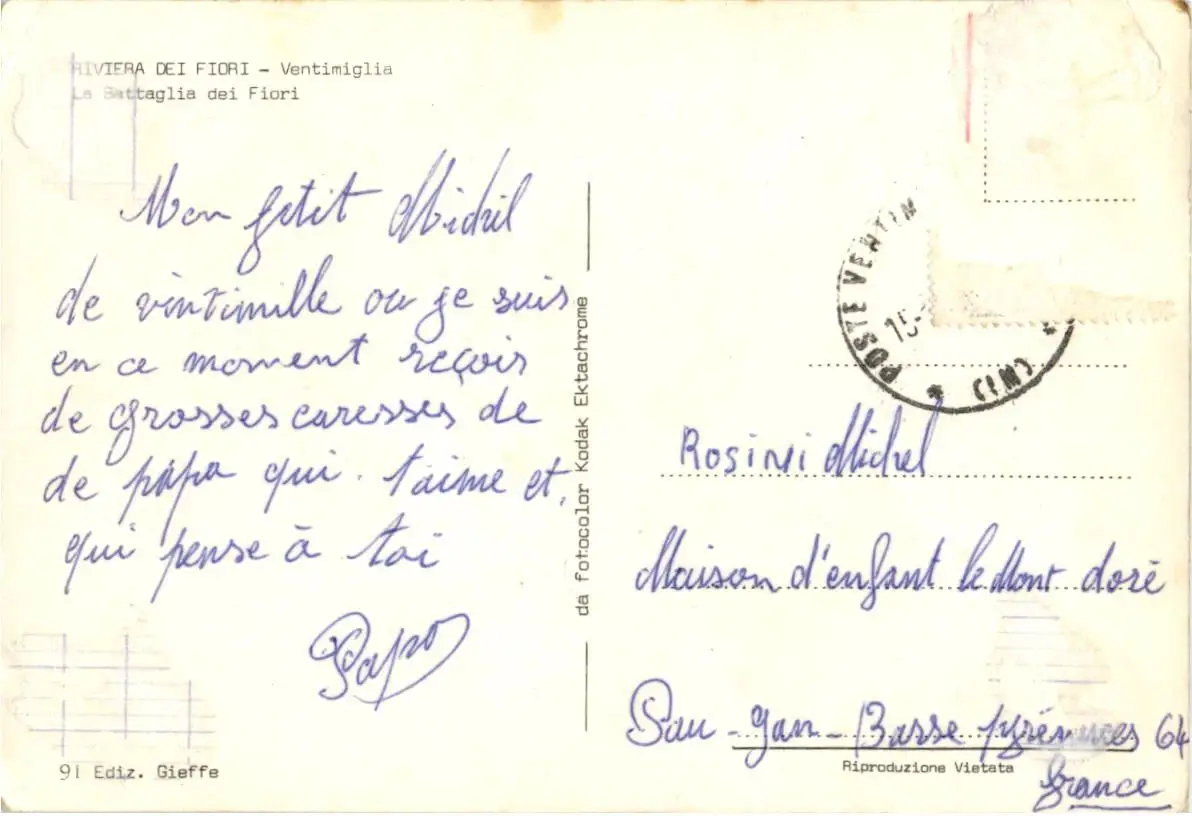 RIVIERA DEI FIORI - Ventimiglia
La Battaglia dei Fiori
Mon petit Michel
de vintimille ou je suis
en ce moment reçois
de grosses caresses de
de papa qui t'aime et,
qui pense à toi
Papa
91 Ediz. Gieffe
da fotocolor Kodak Ektachrome
POSTE VENTIM
15-
(IM)
Rosini Michel
Maison d'enfant le Mont doré
Pau - Gan - Basse pyrénnees 64
france
Riproduzione Vietata